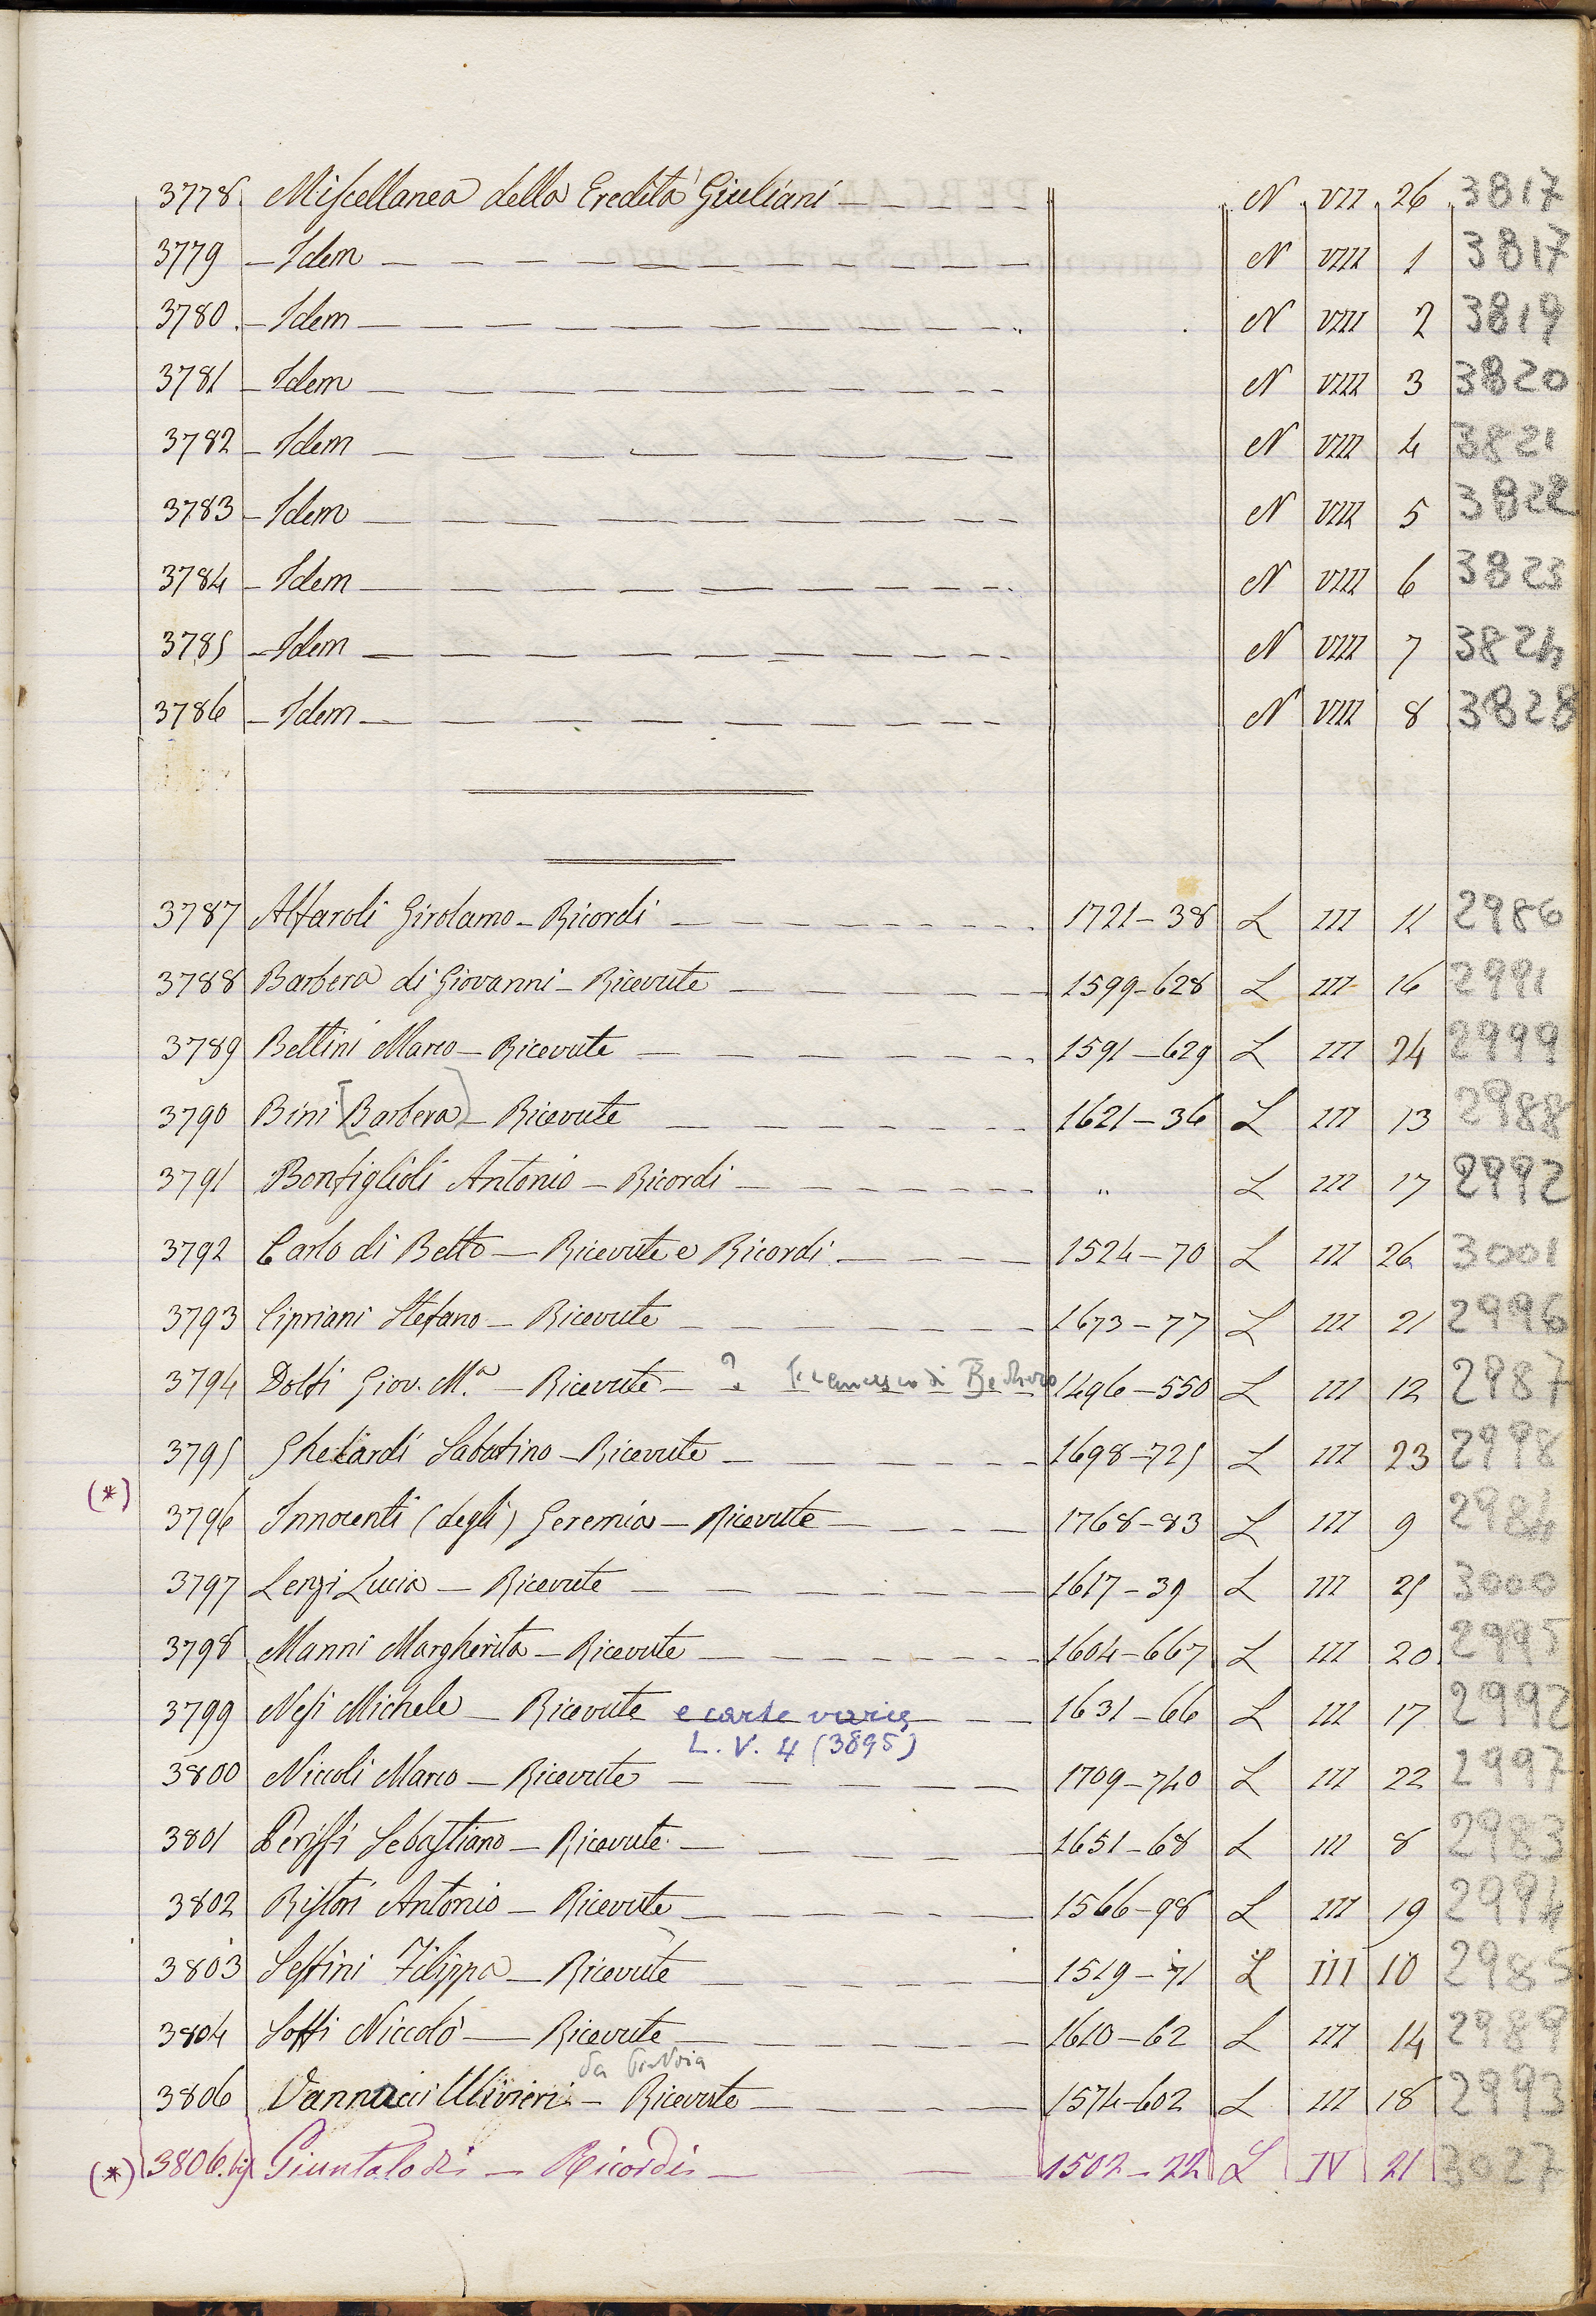 3778 Miscellanea della Eredità Giuliani N VII 26 3817
3779 - Idem N VIII 1 3817
3780 - Idem N VIII 2 3819
3781 - Idem N VIII 3 3820
3782 - Idem N VIII 4 3821
3783 - Idem N VIII 5 3822
3784 - Idem N VIII 6 3823
3785 - Idem N VIII 7 3824
3786 - Idem N VIII 8 3828
3787 Alfaroli Girolamo - Ricordi 1721-38 L III 11 2986
3788 Barbera di Giovanni - Ricevute 1599-628 L III 16 2991
3789 Bettini Marco - Ricevute 1591-629 L III 24 2999
3790 Bini [Barbera] - Ricevute 1621-36 L III 13 2988
3791 Bonfiglioli Antonio - Ricordi " L III 17 2992
3792 Carlo di Betto - Ricevute e Ricordi 1524-70 L III 26 3001
3793 Cipriani Stefano - Ricevute 1673-77 L III 21 2996
3794 Dolfi Giov. M.a - Ricevute - ? Francesco di 1496-550 L III 12 2987
3795 Gherardi Sabatino - Ricevute 1698-725 L III 23 2998
(*)
3796 Innocenti (degli) Geremia - Ricevute 1768-83 L III 9 2984
3797 Lenzi Lucia - Ricevute 1617-39 L III 25 3000
3798 Manni Margherita - Ricevute 1604-667 L III 20 2995
3799 Nesi Michele - Ricevute e carte varie 1631-66 L III 17 2992
L. V. 4 (3895)
3800 Niccoli Marco - Ricevute 1709-740 L III 22 2997
3801 Perissi Sebastiano - Ricevute 1651-68 L III 8 2983
3802 Ristori Antonio - Ricevute 1566-98 L III 19 2994
3803 Sestini Filippa - Ricevute 1519-71 L III 10 2985
3804 Soffi Niccolò - Ricevute 1610-62 L III 14 2989
da
3806 Vannucci Ulivieri - Ricevute 1574-602 L III 18 2993
(*) 3806.bis Giuntalodi - Ricordi 1502-22 L IV 21 3027